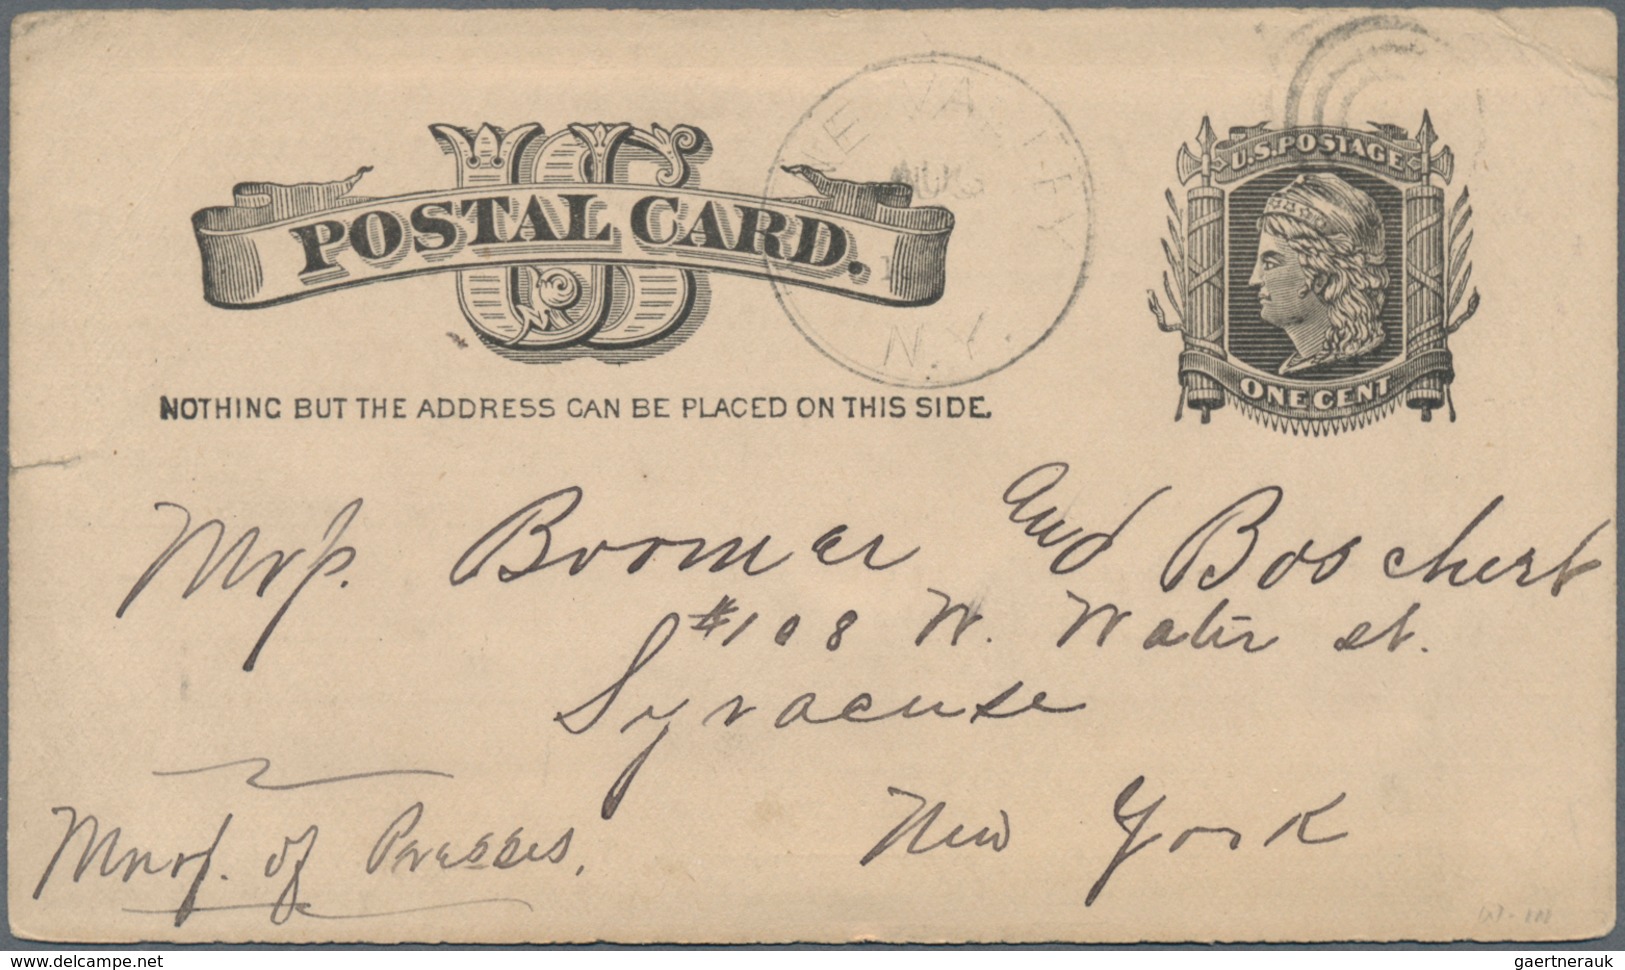 US
POSTAL CARD.
NOTHING BUT THE ADDRESS CAN BE PLACED ON THIS SIDE.
AUG
N.Y.
U.S. POSTAGE
ONE CENT
Mrs. Boomer and Boschert
#108 W. Water st.
Syracuse
New York
Mnrs. of Presses.
delcampe.net
gaertnerauk